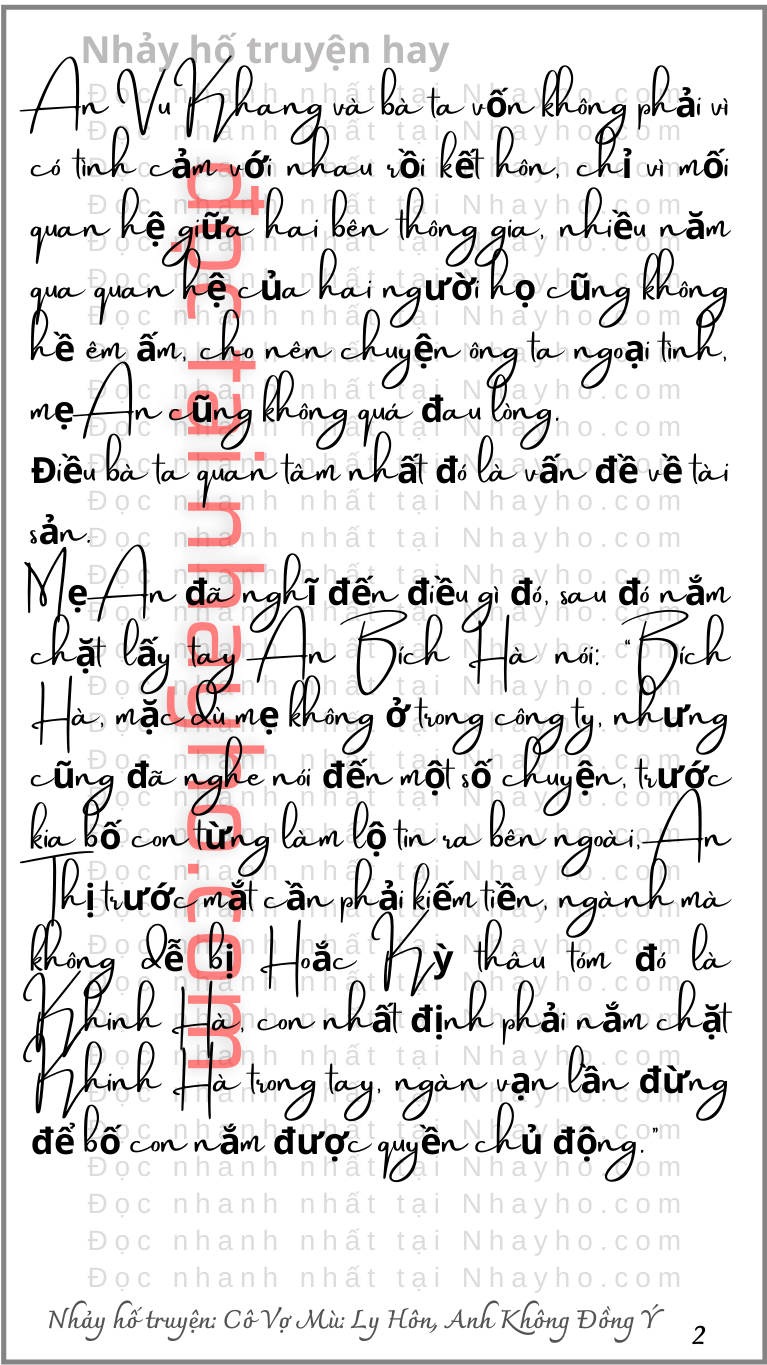 Nhảy hố truyện hay
An Vu Khang và bà ta vốn không phải vì
có tình cảm với nhau rồi kết hôn, chỉ vì mối
quan hệ giữa hai bên thông gia, nhiều năm
qua quan hệ của hai người họ cũng không
hề êm ấm, cho nên chuyện ông ta ngoại tình,
mẹ An cũng không quá đau lòng.
Điều bà ta quan tâm nhất đó là vấn đề về tài
sản.
Mẹ An đã nghĩ đến điều gì đó, sau đó nắm
chặt lấy tay An Bích Hà nói: “Bích
Hà, mặc dù mẹ không ở trong công ty, nhưng
cũng đã nghe nói đến một số chuyện, trước
kia bố con từng làm lộ tin ra bên ngoài, An
Thị trước mắt cần phải kiếm tiền, ngành mà
không dễ bị Hoắc Kỳ thâu tóm đó là
Khinh Hà, con nhất định phải nắm chặt
Khinh Hà trong tay, ngàn vạn lần đừng
để bố con nắm được quyền chủ động.”
đọc tại nhayho.com
Đọc nhanh nhất tại Nhayho.com
Đọc nhanh nhất tại Nhayho.com
Đọc nhanh nhất tại Nhayho.com
Đọc nhanh nhất tại Nhayho.com
Nhảy hố truyện: Cô Vợ Mù: Ly Hôn, Anh Không Đồng Ý
2